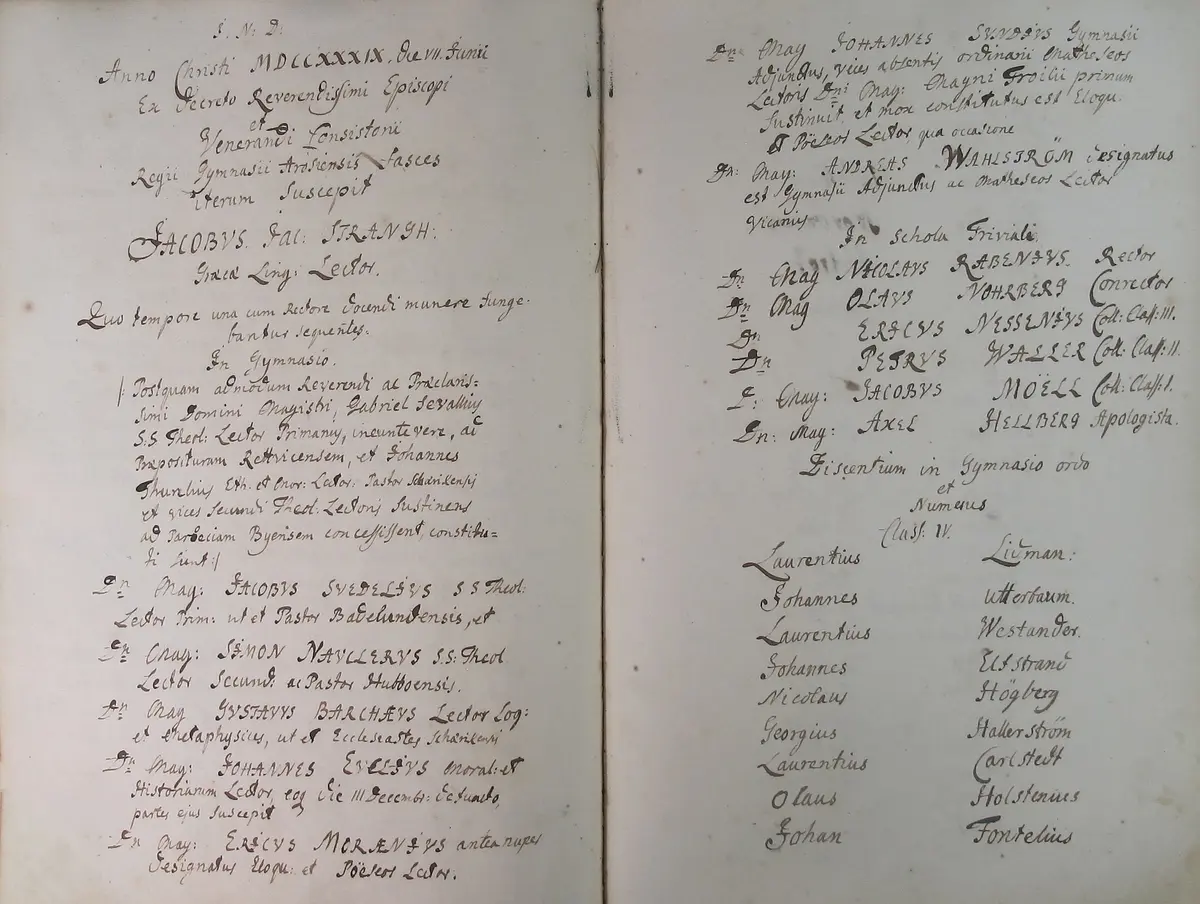 I. N. D.
Anno Christi MDCCXXXIX, die VII. Junii
Ex Decreto Reverendissimi Episcopi
et
Venerandi Consistorii
Regii Gymnasii Arosiensis Fasces
iterum Suscepit
JACOBVS. Jac: STRANGH:
Græcæ Ling: Lector.
Quo tempore una cum Rectore docendi munere funge-
bantur sequentes.
In Gymnasio.
/: Postquam admodum Reverendi ac Præclaris-
simi Domini Magistri, Gabriel Sevallius
S.S Theol: Lector Primarius, ineunte vere, ad
Præposituram Rettvicensem, et Johannes
Thurelius Eth. et Oror: Lector: Pastor Schærikensis
et vices secundi Theol: Lectoris Sustinens
ad Paroeciam Byensem concessissent, constitu-
ti sunt :/
Dn Mag: JACOBVS SVEDELIVS S S Theol:
Lector Prim: ut et Pastor Badelundensis, et
Dn Mag: SIMON NAVCLERVS S.S: Theol
Lector Secund: ac Pastor Hubboensis.
Dn Mag GVSTAVVS BARCHÆVS Lector Log:
et Metaphysices, ut et Ecclesiastes Schærikensis
Dn Mag: JOHANNES EVELIVS Moral: et
Historiarum Lector, eoq die III Decembr: defuncto,
partes ejus suscepit
Dn Mag: ERICVS MORÆNIVS antea nuper
Designatus Eloqu: et Poëseos Lector.
Dn: Mag JOHANNES SVNDIVS Gymnasii
Adjunctus, vices absentis ordinarii Matheseos
Lectoris Dni Mag: Magni Troilii primum
sustinuit et mox constitutus est Eloqu:
et Poëseos Lector, qua occasione
Dn: Mag: ANDREAS WAHLSTRÖM designatus
est Gymnasii Adjunctus ac Matheseos Lector
Vicarius
In Schola Triviali.
Dn Mag NICOLAVS RABENIVS. Rector
Dn Mag OLAVS NOHRBERG Conrector
Dn ERICVS NESSENIVS Coll: Class: III.
Dn PETRVS WALLER Coll: Class: II.
D: Mag: JACOBVS MÖELL Coll: Class: I.
Dn: Mag: AXEL HELLBERG Apologista.
Discentium in Gymnasio ordo
et
Numerus
Class: IV.
Laurentius Lidman:
Johannes Utterbaum.
Laurentius Westander.
Johannes Elfstrand
Nicolaus Högberg
Georgius Hallerström
Laurentius Carlstedt
Olaus Holstenius
Johan Fontelius